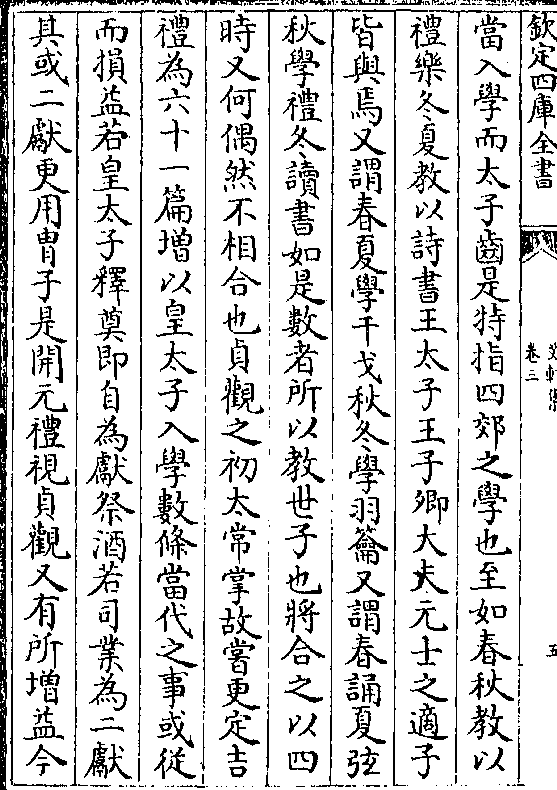 欽定四庫全書
卷三
五
當入學而太子齒是特指四郊之學也至如春秋教以
禮樂冬夏教以詩書王太子王子卿大夫元士之適子
皆與焉又謂春夏學干戈秋冬學羽籥又謂春誦夏弦
秋學禮冬讀書如是數者所以教世子也將合之以四
時又何偶然不相合也貞觀之初太常掌故嘗更定吉
禮為六十一篇增以皇太子入學數條當代之事或從
而損益若皇太子釋奠即自為獻祭酒若司業為二獻
其或二獻更用胄子是開元禮視貞觀又有所增益今